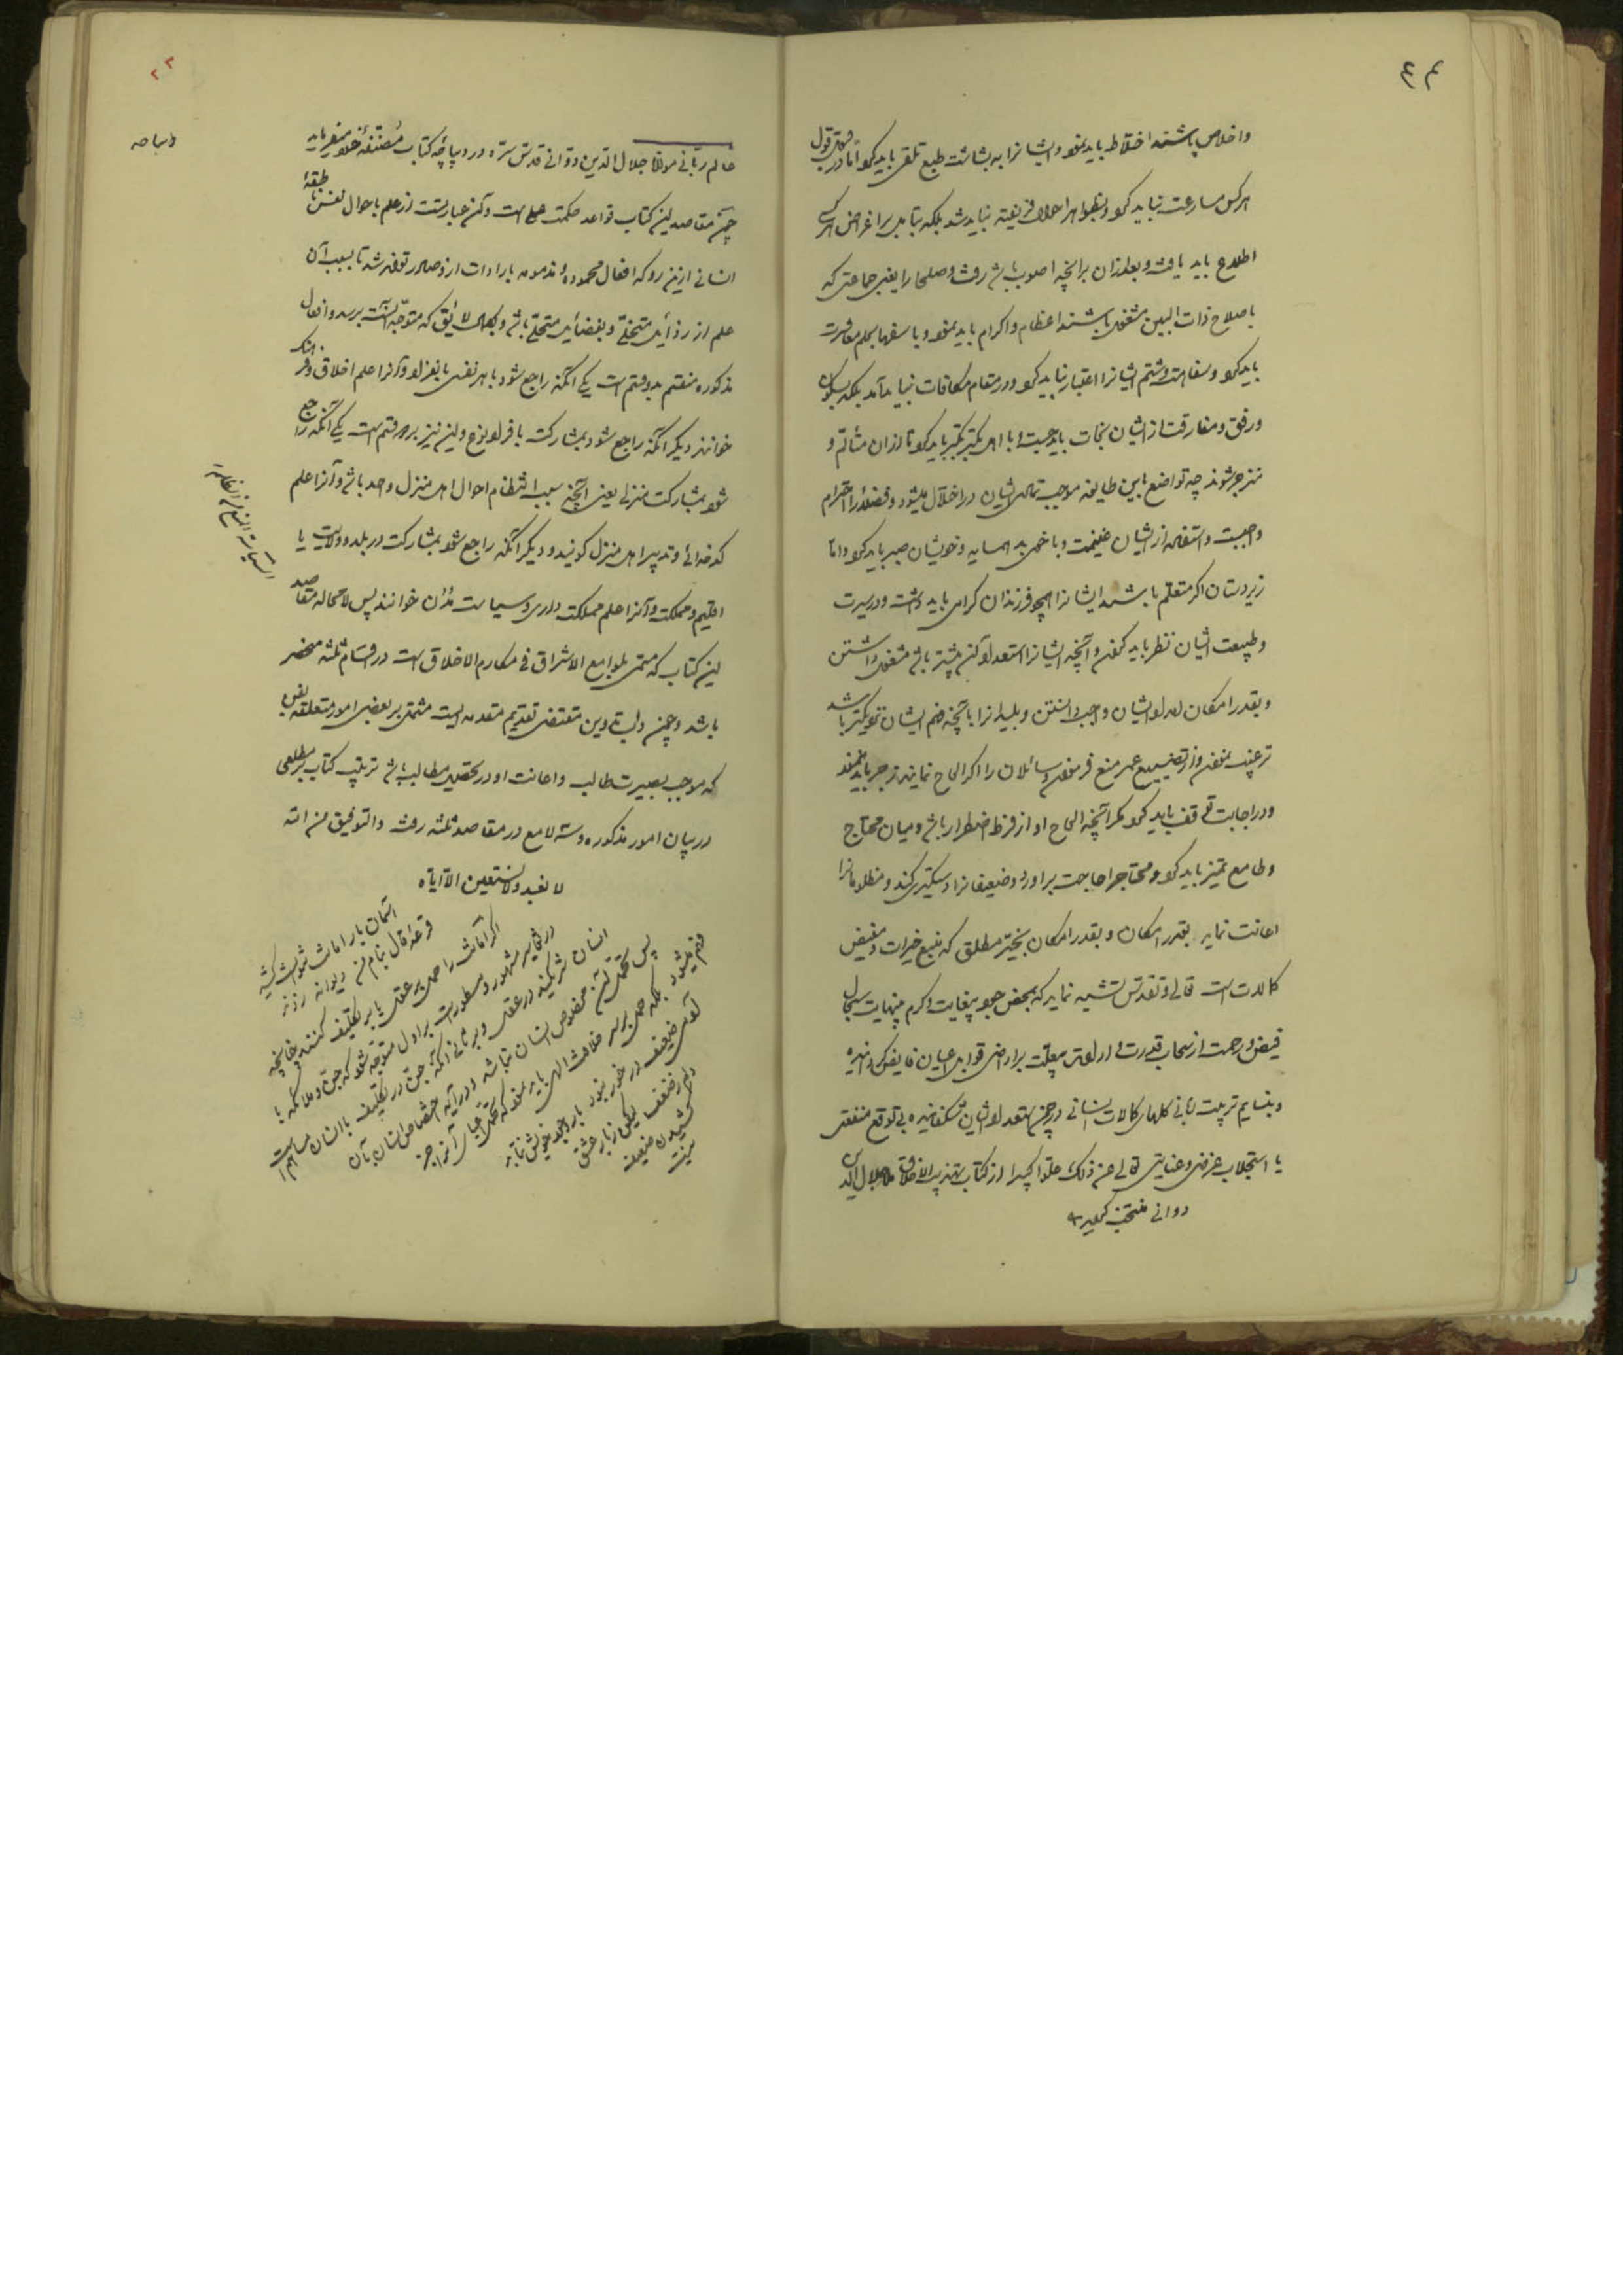 ٤٣
واخلاص باشند اختلاط باید نمود و ایشانرا به بشاشت طبع تلقی باید کرد اما در قبول قول
هرکس مسارعت نباید کرد و بظواهر احوال فریفته نباید شد بلکه بتامل بر اغراض هر یک
اطلاع باید یافت و بعد از ان بر انچه اصوب باشد رفت و صلحا را یعنی جماعتی که
باصلاح ذات البین مشغول باشند اعظام و اکرام باید نمود و با سفها بحلم معاشرت
باید کرد و سفاهت و شتم ایشانرا اعتبار نباید کرد و در مقام مکافات نباید آمد بلکه بسکون
و رفق و مفارقت از ایشان نجات باید جست و با اهل تکبر تکبر باید کرد تا از ان متألم و
منزجر شوند چه تواضع باین طایفه موجب تمادی ایشان در اختلال میشود و فضلا را احترام
واجبست و استفاده از ایشان غنیمت و با همسایه و خویشان صبر باید کرد و اما
زیردستان اگر متعلم باشند ایشانرا همچو فرزندان گرامی باید داشت و در سیرت
و طبیعت ایشان نظر باید کردن و آنچه ایشانرا استعداد آن بیشتر باشد مشغول داشتن
و بقدر امکان امداد ایشان واجب دانستن و بلیدانرا بآنچه فهم ایشان نزدیکتر باشد
ترغیب نمودن و از تضییع عمر منع فرمودن و سائلان را اگر الحاح نمایند زجر باید نمود
و در اجابت توقف باید کرد مگر آنچه الحاح او از فرط اضطرار باشد و میان محتاج
و طامع تمیز باید کرد و محتاج را حاجت براورد و ضعیفانرا دستگیری کند و مظلومانرا
اعانت نماید بقدر امکان و بقدر امکان بخیر مطلق که منبع خیرات و مفیض
کمالات است تعالی و تقدس تشبیه نماید که بمحض جود بیغایت و کرم بینهایت سجال
فیض و رحمت از سحاب قدرت و اراده بی علت بر اراضی قوابل اعیان فایض گردانیده
و بنسایم تربیت ربانی گلهای کمالات انسانی در چمن استعداد ایشان شکفانیده بی توقع منفعتی
یا استجلاب عرضی و عنایتی تعالی عن ذلک علوا کبیرا از کتاب تهذیب الاخلاق ملا جلال الدین
دوانی منتخب گردید
٢٣
دیباجه
عالم ربانی مولانا جلال الدین دوانی قدس سره در دیباچه کتاب مصنفه خود میفرماید
چون مقاصد این کتاب قواعد حکمت عملی است و آن عبارتست از علم باحوال نفس ناطقهٔ
انسانی از این رو که افعال محموده و مذمومه بارادات ازو صادر تواند شد تا بسبب آن
علم از رذایل متخلی و بفضایل متحلی باشد و بکمال لایق که متوجه آنست برسد و افعال
مذکوره منقسم بدو قسم است یکی انکه راجع شود با هر نفسی بانفراد و آنرا علم اخلاق و فرهنگ
خوانند دیگر آنکه راجع شود بمشارکت با افراد نوع و این نیز بر دو قسم است یکی آنکه راجع
شود بمشارکت منزلی یعنی آنچه سبب انتظام احوال اهل منزل واحد باشد و آنرا علم
کدخدائی و تدبیر اهل منزل گویند و دیگر انکه راجع شود بمشارکت در بلد و ولایت یا
اقلیم و مملکت و آنرا علم مملکت داری و سیاست مدن خوانند پس لا محاله مقاصد
این کتاب که مسمی بلوامع الاشراق فی مکارم الاخلاق است در اقسام ثلثه منحصر
باشد و چون داب تدوین مقتضی تقدیم مقدمه ایست مشتمل بر بعضی امور متعلقه بفن
که موجب بصیرت طالب و اعانت او در تحصیل مطالب باشد ترتیب کتاب بر مطلعی
در بیان امور مذکوره و سه لامع در مقاصد ثلثه رفت والتوفیق من الله
لا نعبد ولا نستعین الا ایاه
آسمان بار امانت نتوانست کشید
قرعه فال بنام من دیوانه زدند
اگر امانت را حمل بر عقل یا بر تکلیف کنند چنانچه
در تفاسیر مشهور و مسطور است بر اول متوجه شود که جن و ملائکه با
انسان شریکند در عقل و بر ثانی انکه جن در تکلیف با انسان مساهم است
پس تحمل آن مخصوص انسان نباشد و در آیه اختصاص انسان بآن
فهم میشود بلکه حمل بر خلافت الهی باید نمود که تحمل اعبای آنرا جز